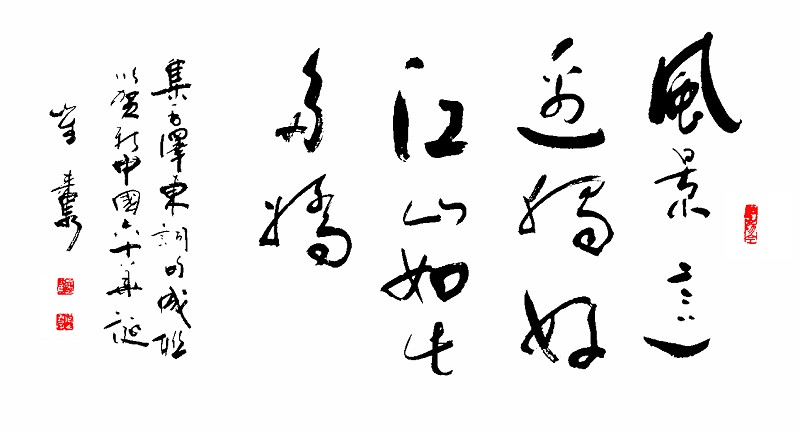 風景這
邊獨好
江山如此
多嬌
集毛澤東詞句成聯
以賀新中國六十華誕
崔